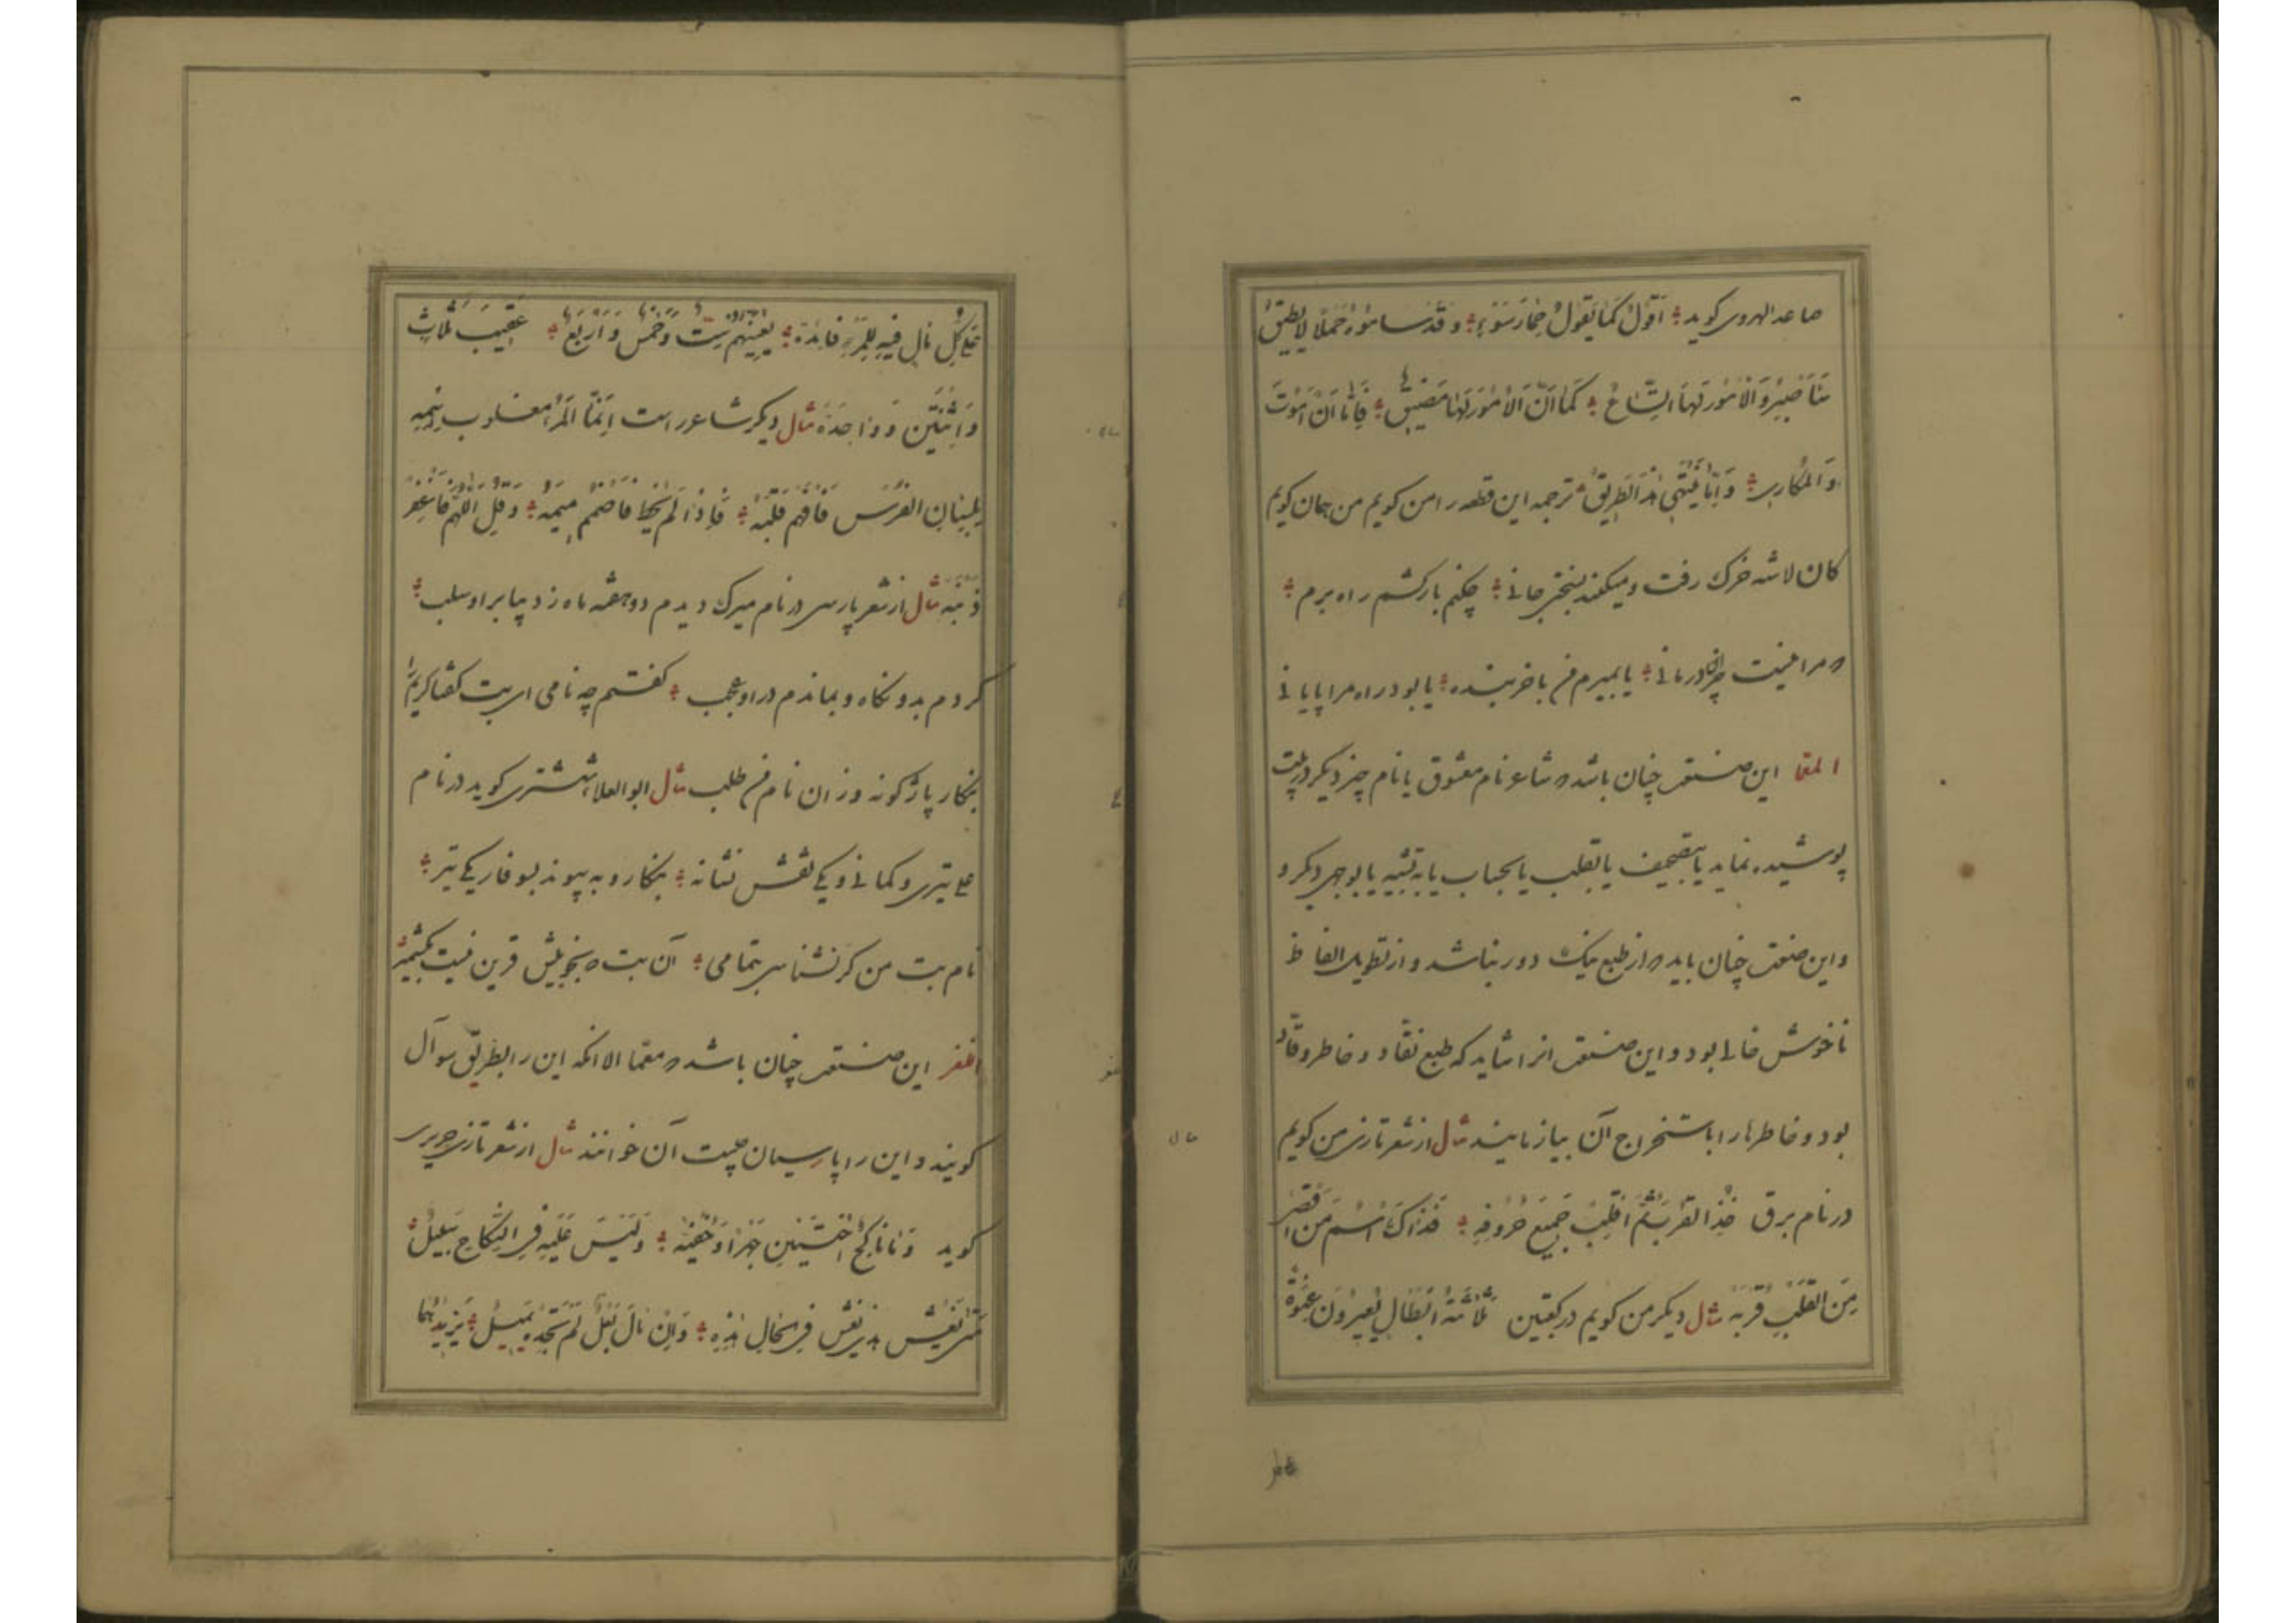 صاعد الهروی کوید اَقُولُ کَمَا یَقُولُ حِمَارُ سَوْءٍ وَقَدْ سامُوْهُ حَمْلًا لا یُطِیقُ
سَاَصْبِرُ وَالْاُمُورُ لَهَا اتِّسَاعٌ کَمَا اَنَّ الْاُمُورَ لَهَا مَضِیقٌ فَاِمَّا اَنْ اَمُوْتَ
وَالْمُکَارِی وَاِمَّا یَنْتَهِی هٰذَا الطَّرِیقُ ترجمه این قطعه را من کویم من همان کویم
کان لاشه خرک رفت و میکند بسختی جانی چکنم بارکشم راه برم
که مرا نیست جز این درمانی یا بمیرم من یا خربنده یا بود راه مرا پایانی
المعما این صنعت چنان باشد که شاعر نام معشوق یا نام چیز دیکر در بیت
پوشیده نماید یا بتصحیف یا بقلب یا بحساب یا به تشبیه یا بوجهی دیکر و
واین صنعت چنان باید که از طبع نیک دور نباشد و از تطویل الفاظ
ناخوش خالی بود و این صنعت انرا شاید که طبع نقّاد و خاطر وقّاد
بود و خاطرها را باستخراج آن بیازمایند مثال از شعر تازی من کویم
در نام برق خُذِ الْقُرْبَ ثُمَّ اقْلِبْ جَمِیْعَ حُرُوفِهِ فَذَاکَ اسْمُ مَنْ اَقْصٰی
مِنَ الْقَلْبِ قُرْبَهُ مثال دیکر من کویم در کعبتین ثَلاثَةُ اَبْطَالٍ یُغِیرُونَ عَنْوَةً
عَلی کُلِّ مَالٍ فِیهِ لِلْمَرْءِ فَائِدَة یُعِینُهُمْ سِتٌّ وَخَمْسٌ وَاَرْبَعٌ عَقِیبَ ثَلَاثٍ
وَاثْنَتَیْنِ وَ وَاحِدَةٍ مثال دیکر شاعر راست اِنَّمَا الْمَرْءُ مغلوب اِسْمِهِ
بِلِسَانِ الفُرْسِ فَافْهَمْ قَلْبَهُ فَاِذَا لَمْ یُخْطِ فَاضْمُمْ مِیمَهُ وَقُلِ اللّٰهُمَّ فَاغْفِرْ
ذَنْبَهُ مثال از شعر پارسی در نام میرک دیدم دو هفته ماه زدیبا بر او سلب
کردم بدو نکاه و بماندم در او عجب کفتم چه نامی ای بت کفتا کریم را
بنکار باژکونه وز ان نام من طلب مثال ابو العلا ششتری کوید در نام
علی تیری و کمانی و یکی نقش نشانه بنکار و به پیوند بسوفار یکی تیر
نام بت من کر نشناسی بتمامی آن بت که بخوبیش قرین نیست بکشمیر
اللغز این صنعت چنان باشد که معما الا انکه این را بطریق سوآل
کویند و این را پارسیان چیست آن خوانند مثال از شعر تازی حریری
کوید وَمَا نَاکِحٌ اُخْتَیْنِ جَهْرًا وَخُفْیَةً وَلَیْسَ عَلَیْهِ فِی النِّکَاحِ سَبِیلُ
مَتٰی یَغْشَ هذِی یَغْشَ فِی الحَالِ هٰذِهِ وَاِنْ مَالَ بَعْلٌ لَمْ تَجِدْهُ یَمِیلُ یَزِیدُهُمَا